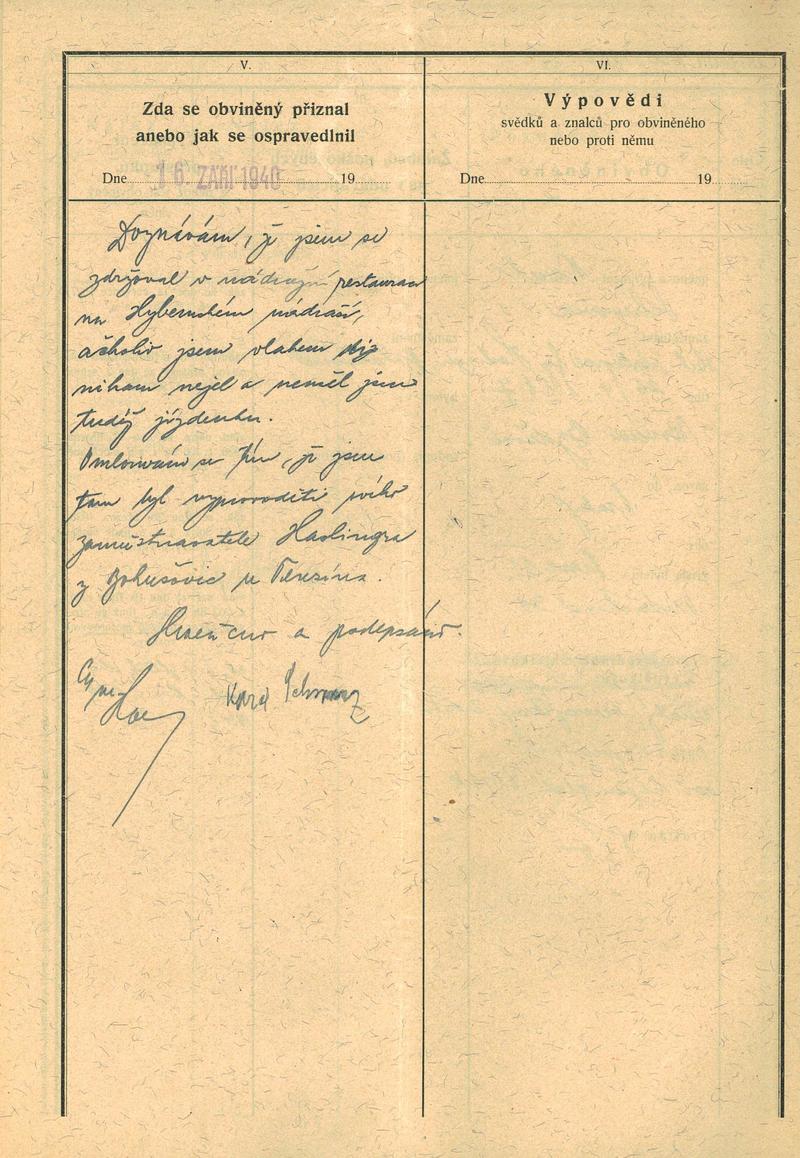 V.
Zda se obviněný přiznal
anebo jak se ospravedlnil
Dne 16. ZÁŘÍ 1940 19
Doznávám, že jsem se
zdržoval v nádražní restauraci
na Hybernském nádraží,
ačkoliv jsem vlakem
nikam nejel a neměl jsem
tudíž jízdenku.
Omlouvám se tím, že jsem
tam byl vyprovoditi svého
zaměstnavatele Haslingra
z Bohušovic u Terezína.
a podepsáno.
Karel Schwarz
VI.
Výpovědi
svědků a znalců pro obviněného
nebo proti němu
Dne 19